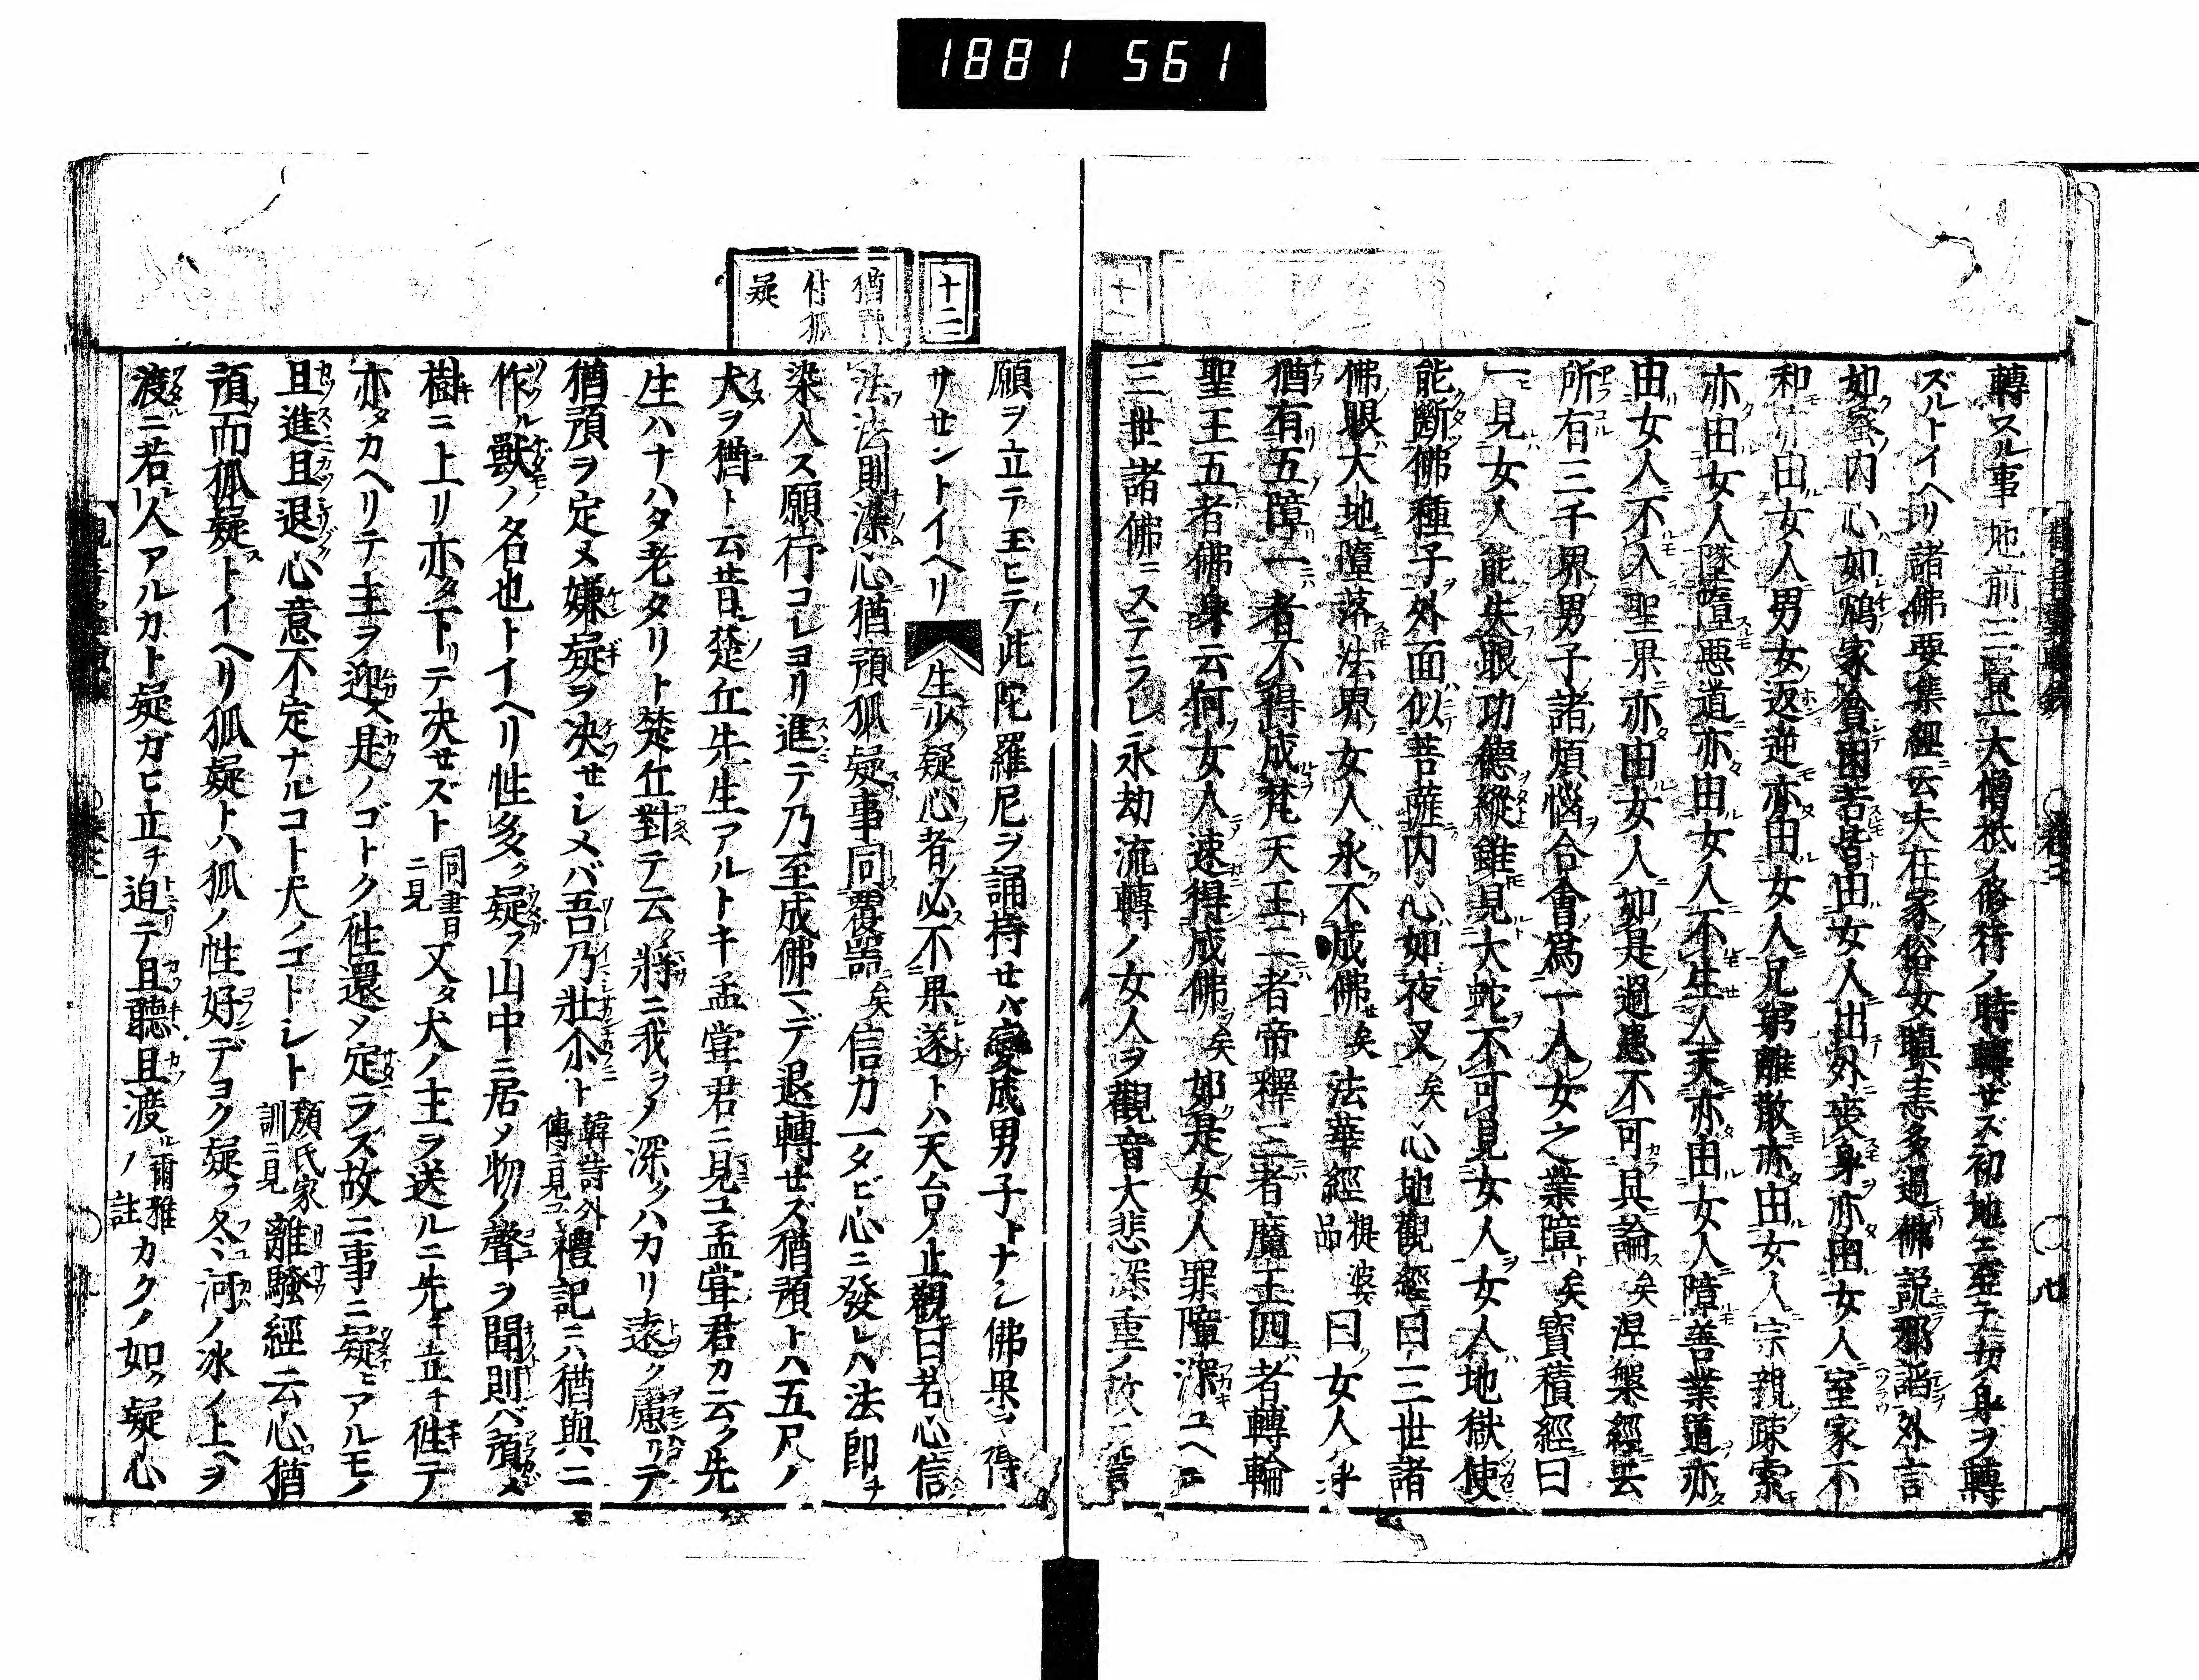 1881 561
轉スル事地前三賢大僧祇ノ修行ノ時轉セズ初地ニ至テ女身ヲ轉
ズルトイヘリ諸佛要集經云夫在家俗女瞋恚多過佛説邪諂外言
如蜜内心如鴆家貧困苦皆由女人出外喪身亦由女人室家不
和亦由女人男女返逆亦由女人兄弟離散亦由女人宗親疎索
亦由女人墜墮悪道亦由女人不生人天亦由女人障善業道亦
由女人不入聖果亦由女人如是過患不可具論矣涅槃經云
所有三千界男子諸煩惱合會爲一人女之業障矣寳積經曰
一見女人能失眼功德縱雖見大蛇不可見女人女人地獄使
能斷佛種子外面似菩薩内心如夜叉矣心地觀經曰三世諸
佛眼大地墮落法界女人永不成佛矣法華經提婆品曰女人身
猶有五障一者不得成梵天王二者帝釋三者魔王四者轉輪
聖王五者佛身云何女人速得成佛矣如是女人罪障深ユヘニ
三世諸佛ニステラレ永劫流轉ノ女人ヲ觀音大悲深重ノ故ニ
十二
猶預付狐疑
願ヲ立テ玉ヒテ此陀羅尼ヲ誦持セバ變成男子トナシ佛果ヲ得
サセントイヘリ 生少疑心者必不果遂トハ天台ノ止觀曰若心信
法法則染心猶預狐疑事同覆器矣信力一タビ心ニ發レハ法即チ
染入ス願行コレヨリ進テ乃至成佛マデ退轉セズ猶預トハ五尺ノ
犬ヲ猶ト云昔楚丘先生アルトキ孟甞君ニ見ユ孟甞君カ云ク先
生ハナハタ老タリト楚丘對テ云ク將ニ我ラノ深クハカリ遠ク慮リテ
猶預ヲ定メ嫌疑ヲ决セシメバ吾乃壯尒ト韓詩外傳ニ見ユ禮記ニハ猶與ニ
作ル獸ノ名也トイヘリ性多ク疑フ山中ニ居メ物ノ聲ヲ聞則バ預メ
樹ニ上リ亦タ下リテ决セズト同書ニ見又タ犬ノ主ヲ送ルニ先キ立チ徃テ
亦タカヘリテ主ヲ迎ス是ノゴトク徃還メ定ラズ故ニ事ニ疑ヒアルモノ
且進且退心意不定ナルコト犬ノゴトシト顔氏家訓ニ見離騒經云心猶
預而狐疑トイヘリ狐疑トハ狐ノ性好デヨク疑フ冬ハ河ノ氷ノ上ヲ
渡ニ若人アルカト疑カヒ立チ迫テ且聽且渡ル爾雅ノ註カクノ如ク疑心